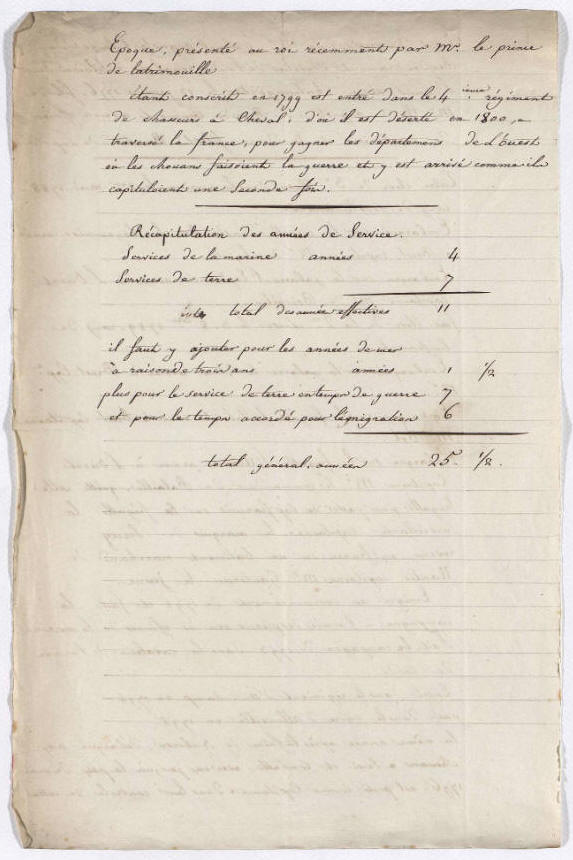 Epoque, présenté au roi récemment par Mr. le prince
de latrimouille
étant conscrit en 1799 est entré dans le 4 ieme régiment
de chasseurs à cheval, d'où il est déserté en 1800, a
traversé la france, pour gagner les départemens de L'Ouest
où les chouans faisoient la guerre et y est arrivé comme ils
capituloient une Seconde fois.
Récapitulation des années de Service.
Services de la marine années 4
Services de terre 7
total des année effectives 11
il faut y ajouter pour les années de mer
à raison de trois ans années 1 1/2
plus pour le service de terre en temps de guerre 7
et pour le temps accordé pour l'émigration 6
total général, années 25 1/2.